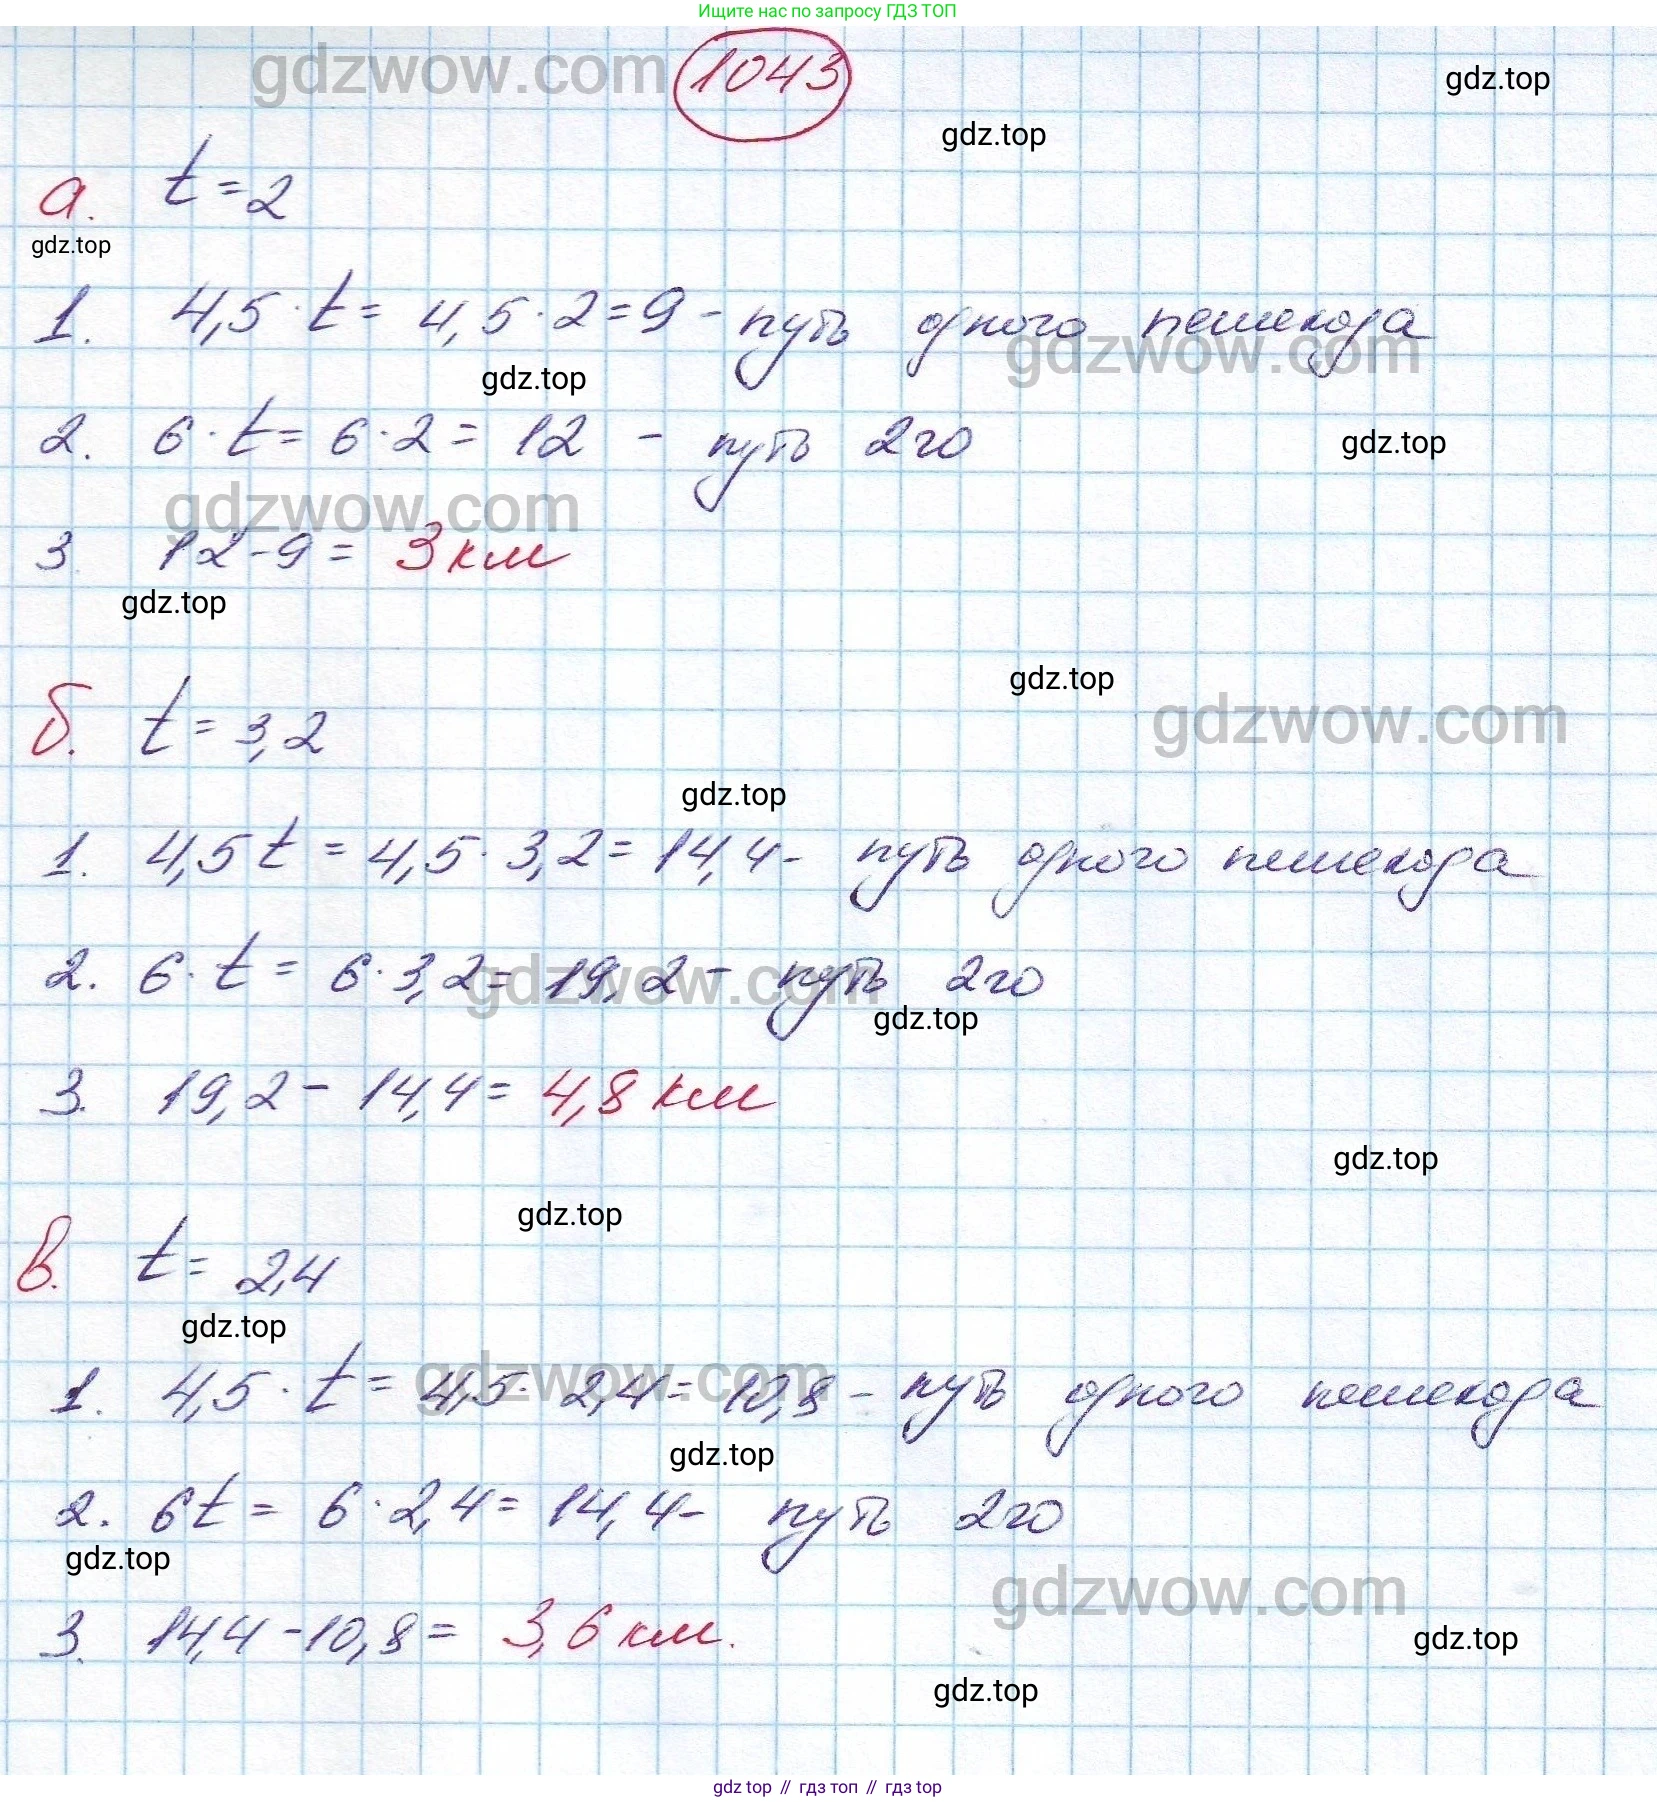 Ищите нас по запросу ГДЗ ТОП
gdzwow.com
1043
gdz.top
gdz.top
а. t = 2
gdz.top
1. 4,5 · t = 4,5 · 2 = 9 - путь одного пешехода
gdzwow.com
gdz.top
2. 6 · t = 6 · 2 = 12 - путь 2го
gdz.top
gdzwow.com
3. 12 - 9 = 3 км
gdz.top
gdz.top
б. t = 3,2
gdzwow.com
gdz.top
1. 4,5 t = 4,5 · 3,2 = 14,4 - путь одного пешехода
2. 6 · t = 6 · 3,2 = 19,2 - путь 2го
gdzwow.com
gdz.top
3. 19,2 - 14,4 = 4,8 км
gdz.top
gdz.top
в. t = 2,4
gdz.top
1. 4,5 · t = 4,5 · 2,4 = 10,8 - путь одного пешехода
gdzwow.com
gdz.top
2. 6t = 6 · 2,4 = 14,4 - путь 2го
gdz.top
gdzwow.com
3. 14,4 - 10,8 = 3,6 км.
gdz.top
gdz.top
gdz top // гдз топ // гдз top